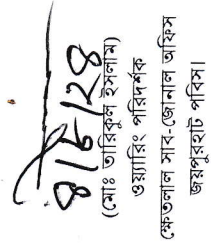 ৪/১/২৪
(মোঃ তারিকুল ইসলাম)
ওয়্যারিং পরিদর্শক
ক্ষেতলাল সাব-জোনাল অফিস
জয়পুরহাট পবিস।